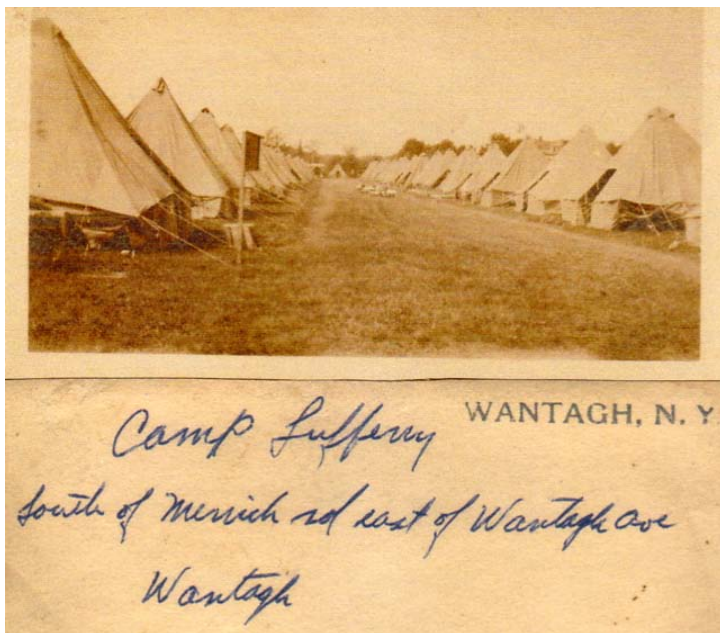 WANTAGH, N. Y.
Camp
South of Merrick rd east of Wantagh Ave
Wantagh